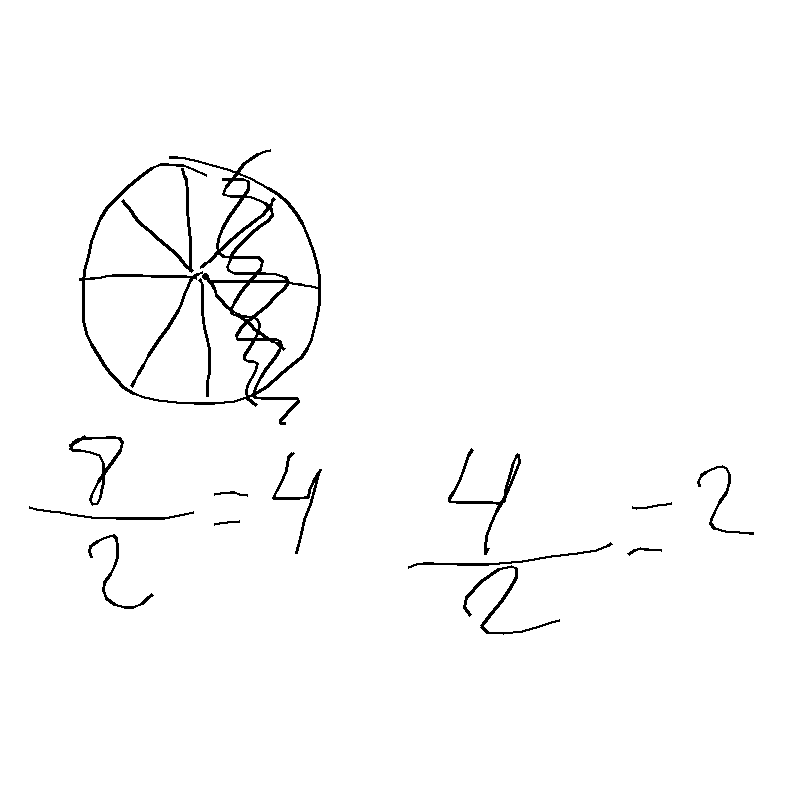 8/2 = 4
4/2 = 2